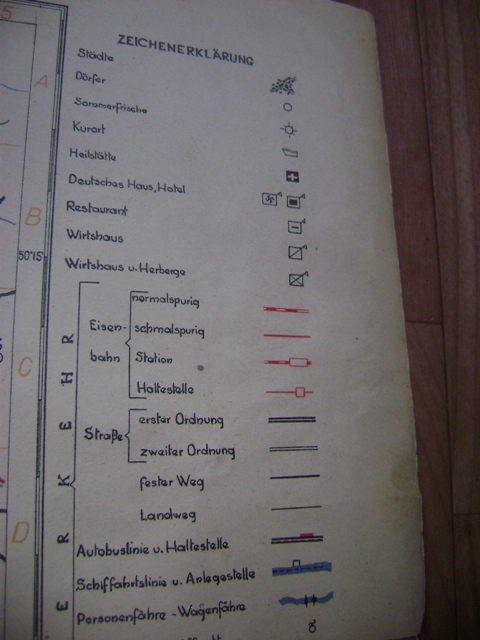 5
ZEICHENERKLÄRUNG
Städte
Dörfer
A
Sommerfrische
Kurort
Heilstätte
Deutsches Haus, Hotel
Restaurant
B
Wirtshaus
50°15'
Wirtshaus u. Herberge
normalspurig
Eisen-
schmalspurig
bahn
Station
C
Haltestelle
erster Ordnung
Straße
zweiter Ordnung
fester Weg
Landweg
D
Autobuslinie u. Haltestelle
Schiffahrtslinie u. Anlegestelle
Personenfähre - Wagenfähre
ERKEHR